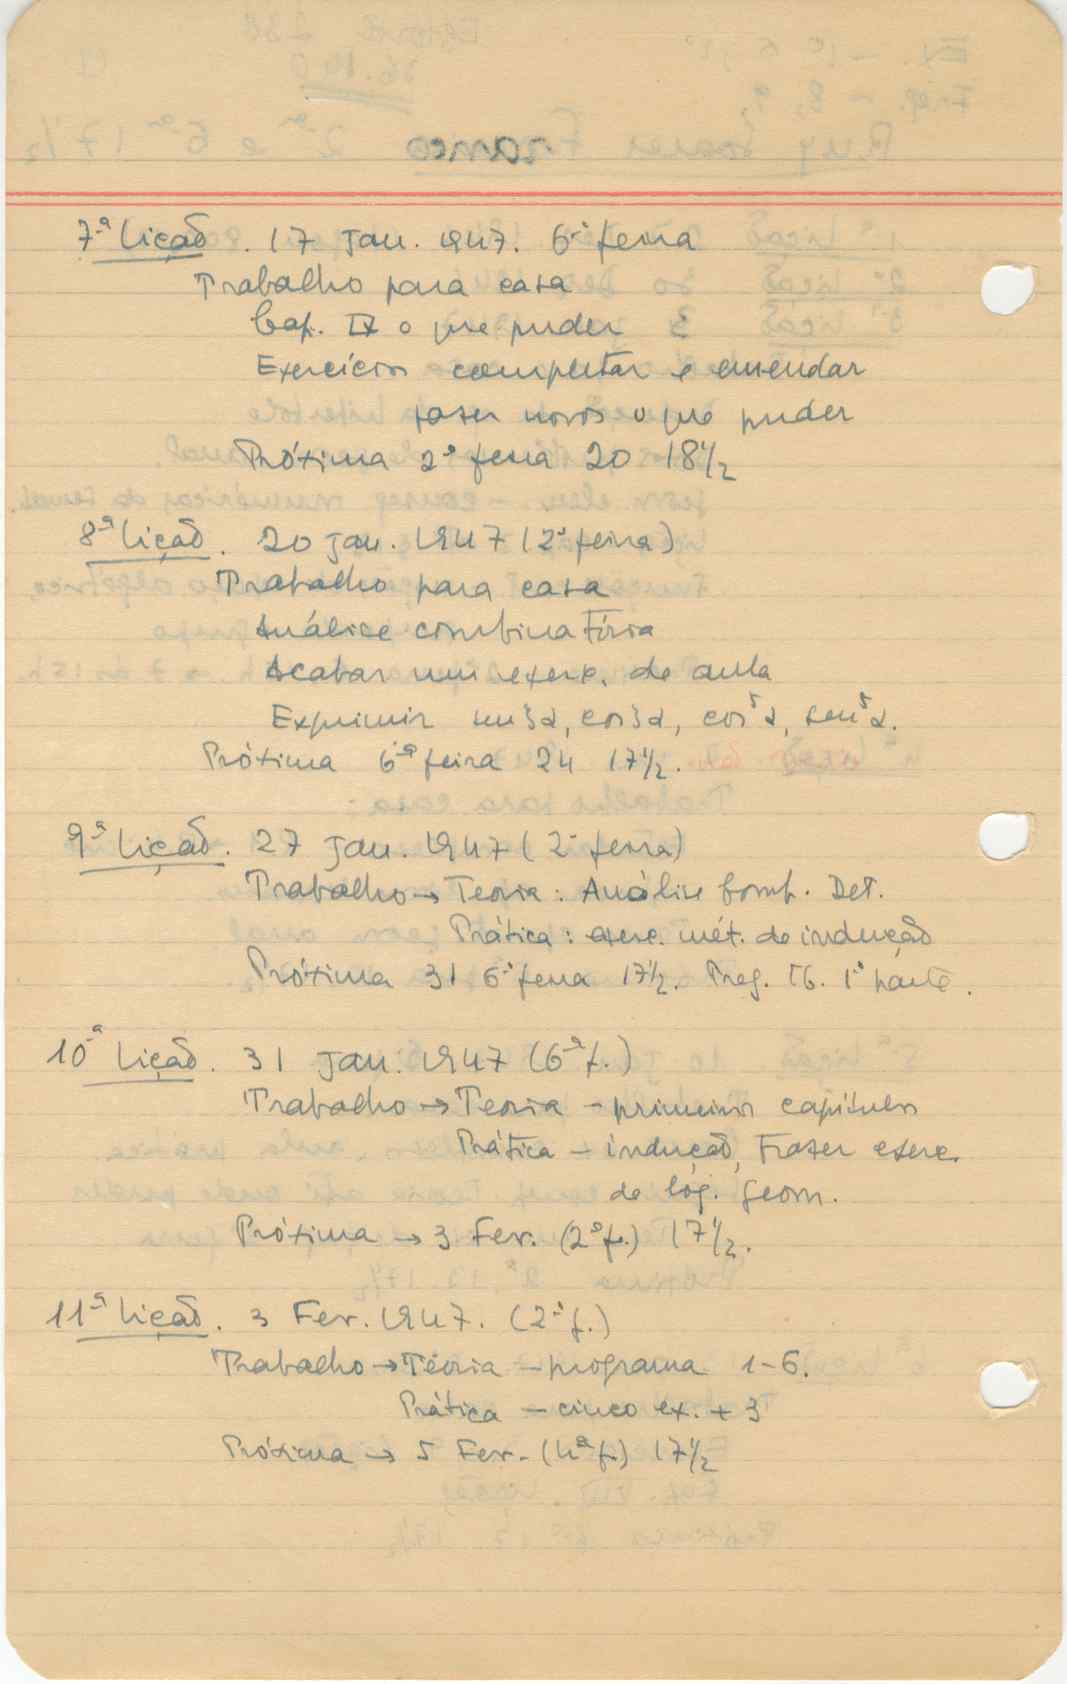 7.ª Lição. 17 Jan. 1947. 6.ª feira
Trabalho para casa
Cap. IX o que puder
Exercícios completar e emendar
fazer novos o que puder
Próxima 2.ª feira 20 18½
8.ª Lição. 20 Jan. 1947 (2.ª feira)
Trabalho para casa
Análise combinatória
Acabar um exerc. de aula
Exprimir sen3α, cos3α, cos⁵α, sen⁵α.
Próxima 6.ª feira 24 17½.
9.ª Lição. 27 Jan. 1947 (2.ª feira)
Trabalho → Teoria: Análise Comb. Det.
Prática: exerc. mét. de indução
Próxima 31 6.ª feira 17½. Preg. 1.ª parte.
10.ª Lição. 31 Jan. 1947 (6.ª f.)
Trabalho → Teoria – primeiros capítulos
Prática – indução, Trazer exerc.
de log. geom.
Próxima → 3 Fev. (2.ª f.) 17½.
11.ª Lição. 3 Fev. 1947. (2.ª f.)
Trabalho → Teoria – programa 1-6.
Prática – cinco ex. + 3
Próxima → 5 Fev. (4.ª f.) 17½